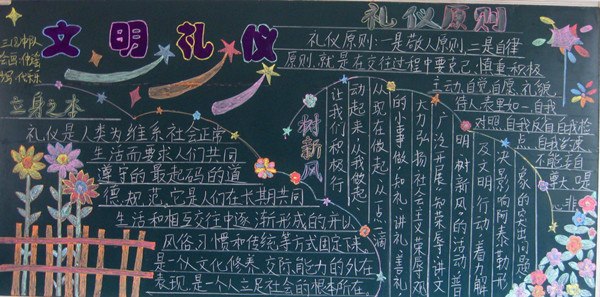 文明礼仪
立身之本
礼仪是人类为维系社会正常
生活而要求人们共同
遵守的最起码的道
德规范,它是人们在长期共同
生活和相互交往中逐渐形成的并以
风俗习惯和传统等方式固定下来。
是一个人文化修养、交际能力的外在
表现,是一个人立足社会的根本所在。
树新风
让我们积极行
动起来,从我做起
从现在做起,从一点一滴
的小事做,知礼、讲礼、善礼
大力弘扬社会主义荣辱观
广泛开展"知荣辱、讲文
明、树新风"的活动,普
及文明行动,着力解
决影响阿泰勒形
象的突出问题
礼仪原则
礼仪原则:一是敬人原则,二是自律
原则,就是在交往过程中要克己、慎重、积极
主动、自觉自愿、礼貌
待人、表里如一,自我
对照,自我反省,自我检
点,自我
不能妄自
尊大,口是
非